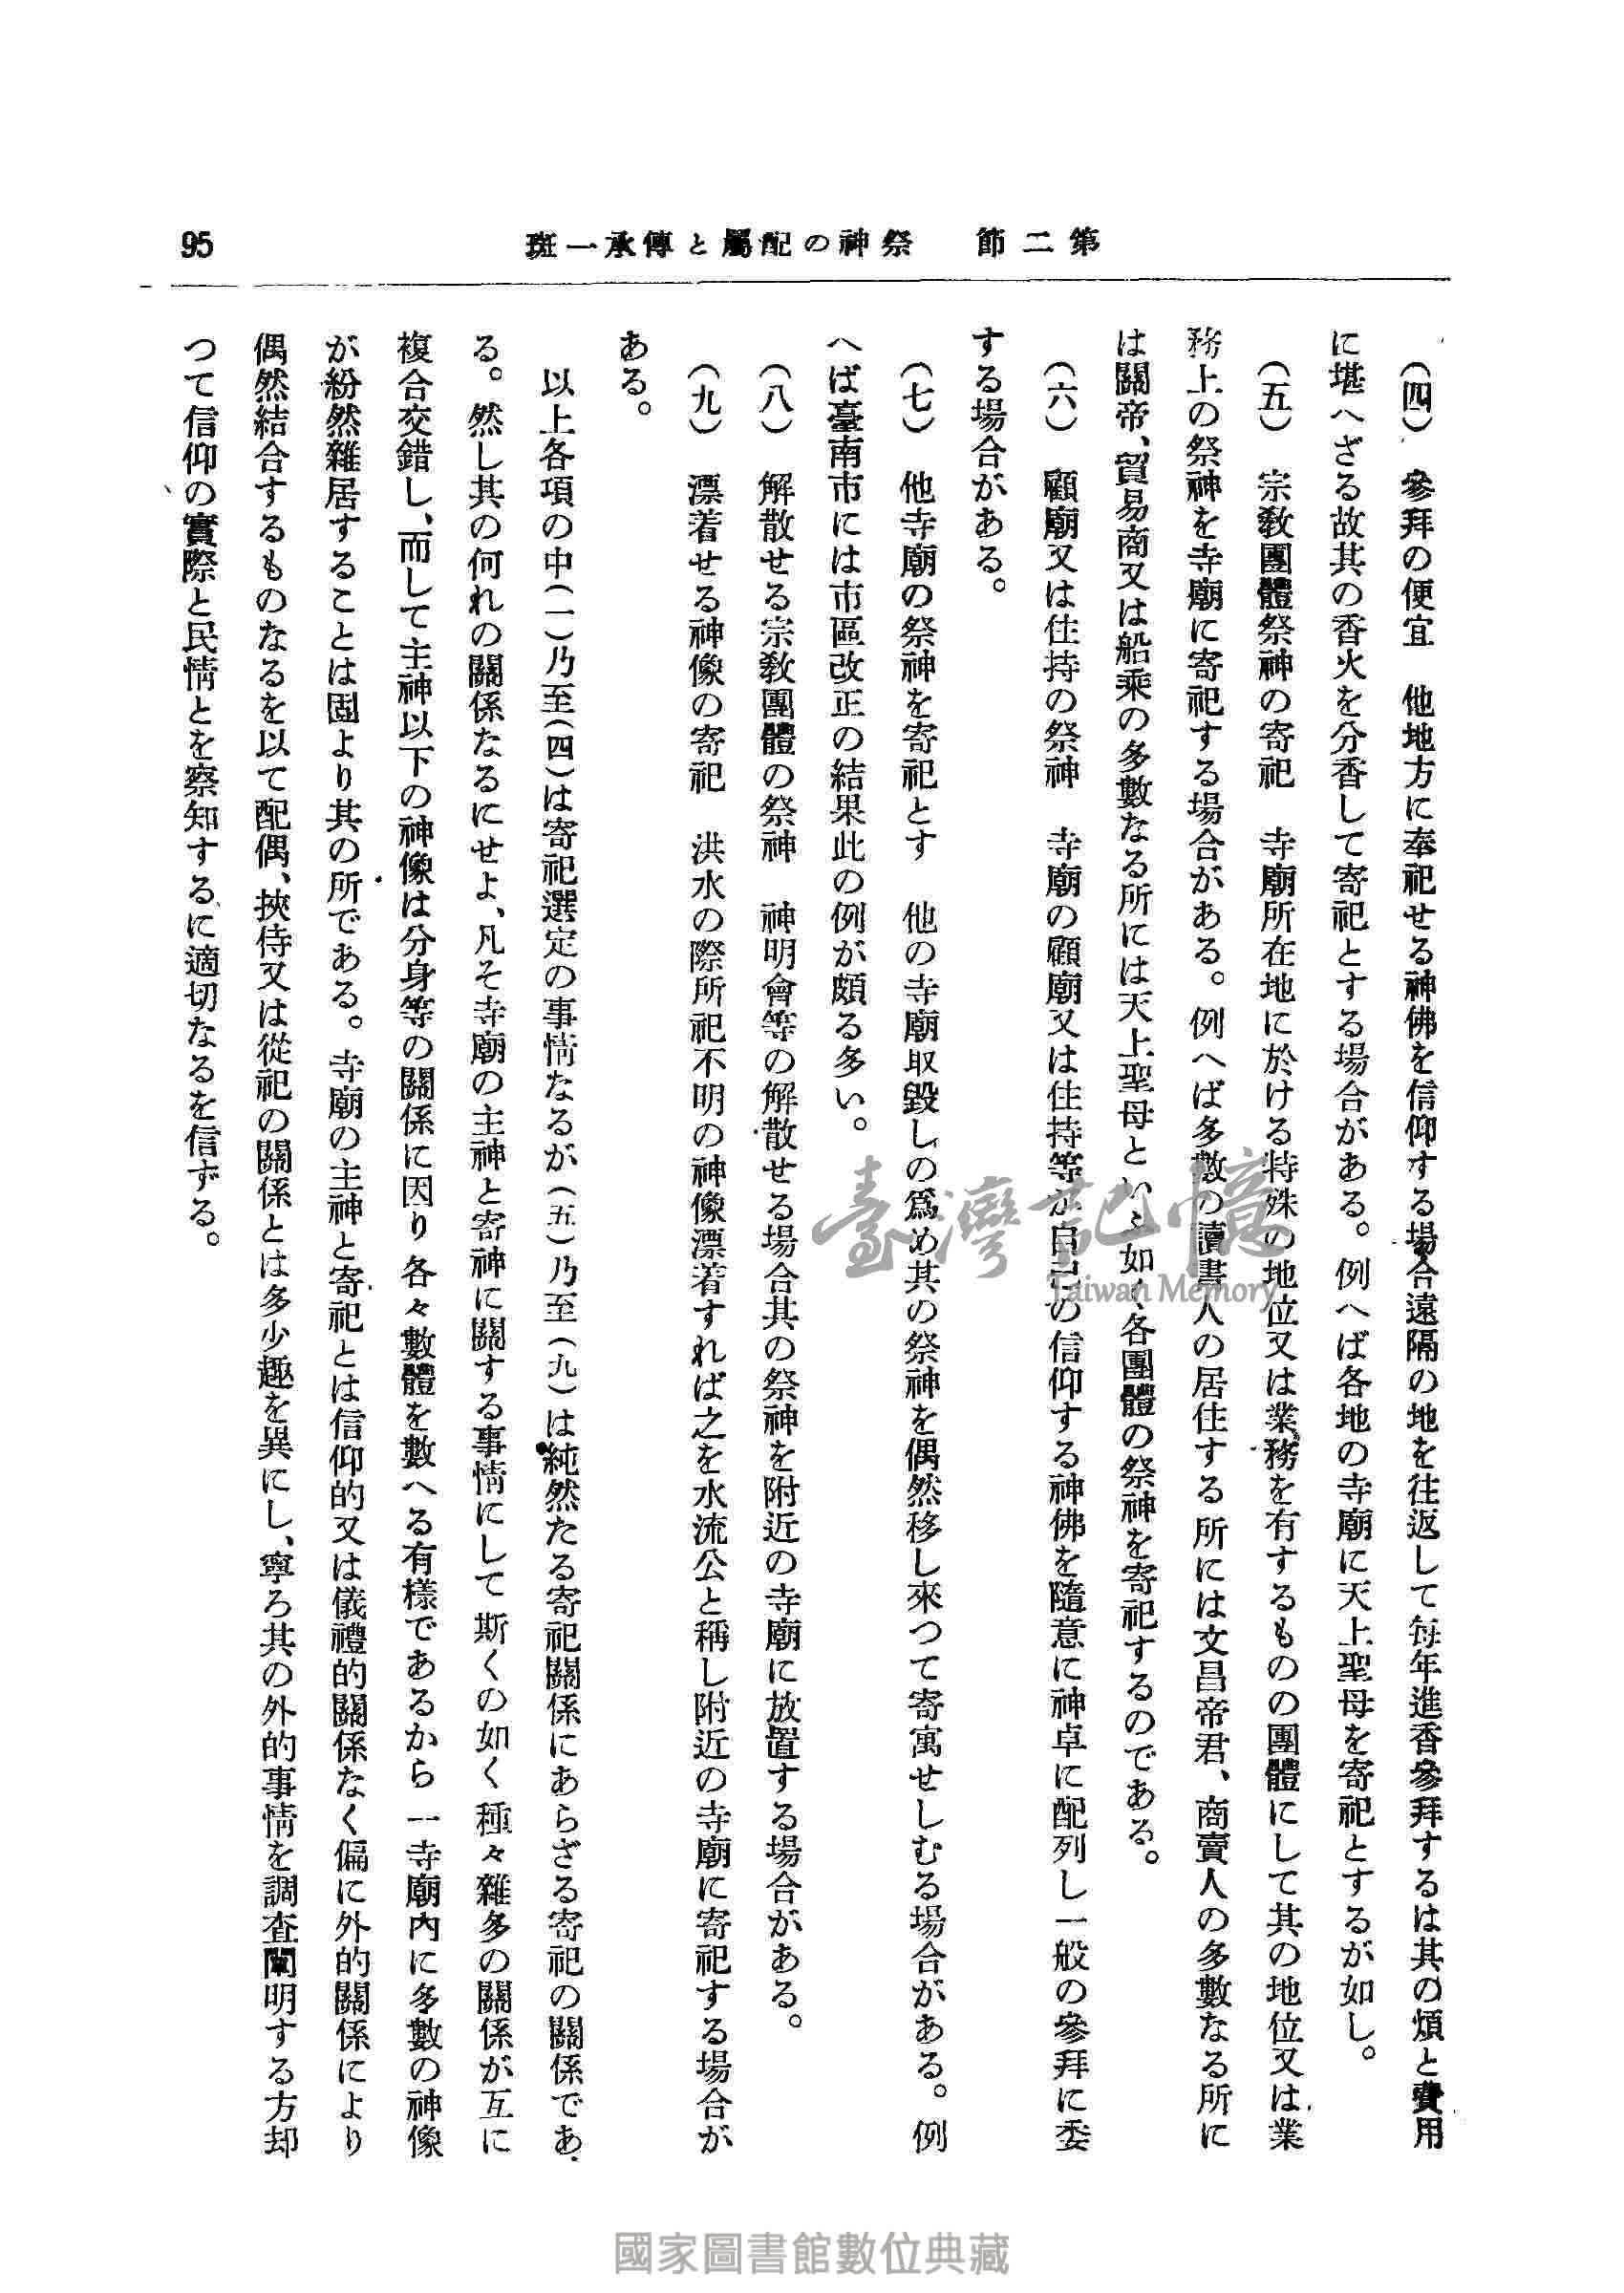 第二節　祭神の配屬と傳承一斑
95
（四）　參拜の便宜　他地方に奉祀せる神佛を信仰する場合遠隔の地を往返して每年進香參拜するは其の煩と費用
に堪へざる故其の香火を分香して寄祀とする場合がある。例へば各地の寺廟に天上聖母を寄祀とするが如し。
（五）　宗敎團體祭神の寄祀　寺廟所在地に於ける特殊の地位又は業務を有するものの團體にして其の地位又は業
務上の祭神を寺廟に寄祀する場合がある。例へば多數の讀書人の居住する所には文昌帝君、商賣人の多數なる所に
は關帝、貿易商又は船乘の多數なる所には天上聖母といふ如く各團體の祭神を寄祀するのである。
（六）　顧廟又は住持の祭神　寺廟の顧廟又は住持等が自己の信仰する神佛を隨意に神卓に配列し一般の參拜に委
する場合がある。
（七）　他寺廟の祭神を寄祀とす　他の寺廟取毀しの爲め其の祭神を偶然移し來つて寄寓せしむる場合がある。例
へば臺南市には市區改正の結果此の例が頗る多い。
（八）　解散せる宗敎團體の祭神　神明會等の解散せる場合其の祭神を附近の寺廟に放置する場合がある。
（九）　漂着せる神像の寄祀　洪水の際所祀不明の神像漂着すれば之を水流公と稱し附近の寺廟に寄祀する場合が
ある。
以上各項の中（一）乃至（四）は寄祀選定の事情なるが（五）乃至（九）は純然たる寄祀關係にあらざる寄祀の關係であ
る。然し其の何れの關係なるにせよ、凡そ寺廟の主神と寄神に關する事情にして斯くの如く種々雜多の關係が互に
複合交錯し、而して主神以下の神像は分身等の關係に因り各々數體を數へる有樣であるから一寺廟內に多數の神像
が紛然雜居することは固より其の所である。寺廟の主神と寄祀とは信仰的又は儀禮的關係なく偏に外的關係により
偶然結合するものなるを以て配偶、挾侍又は從祀の關係とは多少趣を異にし、寧ろ其の外的事情を調査闡明する方却
つて信仰の實際と民情とを察知するに適切なるを信ずる。
臺灣記憶
Taiwan Memory
國家圖書館數位典藏